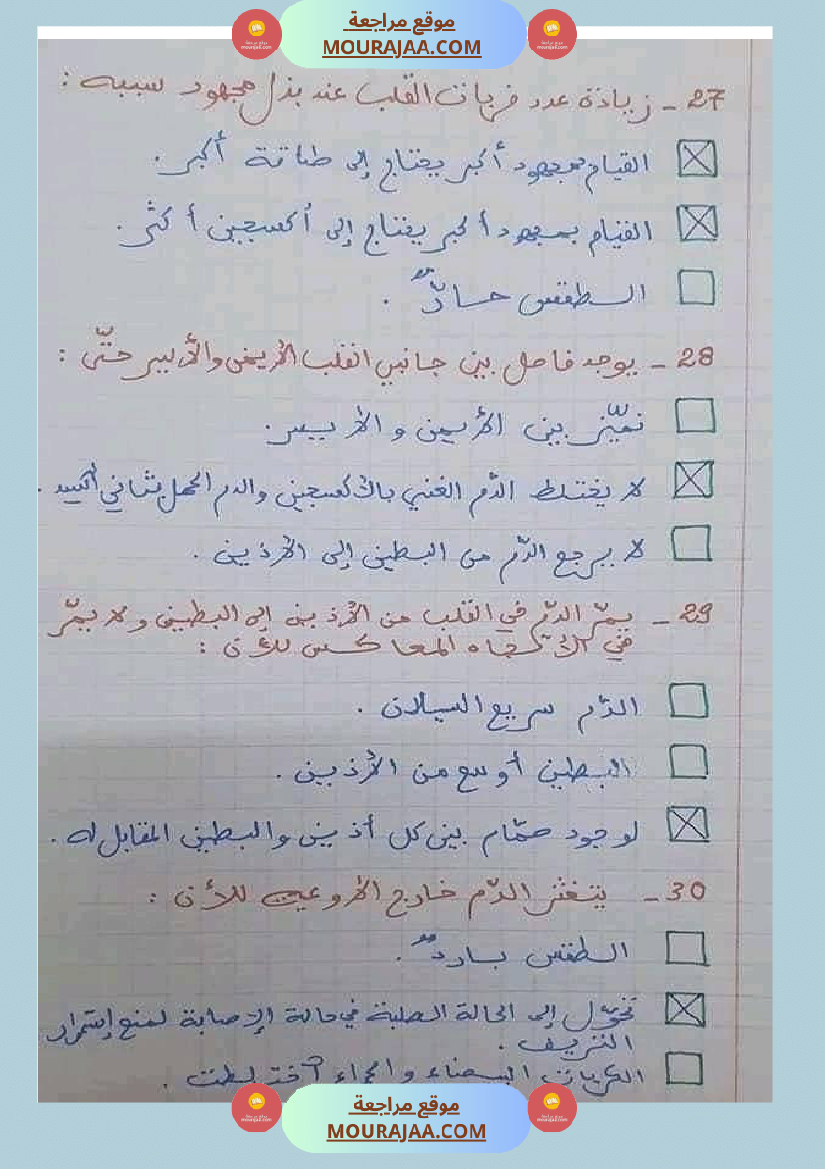 موقع مراجعة
MOURAJAA.COM
27 - زيادة عدد ضربات القلب عند بذل مجهود سببه :
القيام بمجهود أكبر يحتاج إلى طاقة أكبر.
القيام بمجهود أكبر يحتاج إلى أكسجين أكثر.
الطقس حارّ .
28 - يوجد فاصل بين جانبي القلب الأيمن والأيسر حتّى :
نميّز بين الأيمن و الأيسر.
لا يختلط الدّم الغني بالأكسجين والدم المحمل بثاني أكسيد .
لا يرجع الدّم من البطين إلى الأذين .
29 - يمرّ الدّم في القلب من الأذين إلى البطين و لا يمرّ
في الاتجاه المعاكس لأن :
الدّم سريع السيلان .
البطين أوسع من الأذين .
لوجود صمّام بين كل أذين والبطين المقابل له .
30 - يتخثر الدّم خارج الأوعية لأن :
الطقس بارد .
تحوّل إلى الحالة الصلبة في حالة الإصابة لمنع إستمرار
النزيف .
الكريات البيضاء والحمراء اختلطت .
موقع مراجعة
MOURAJAA.COM